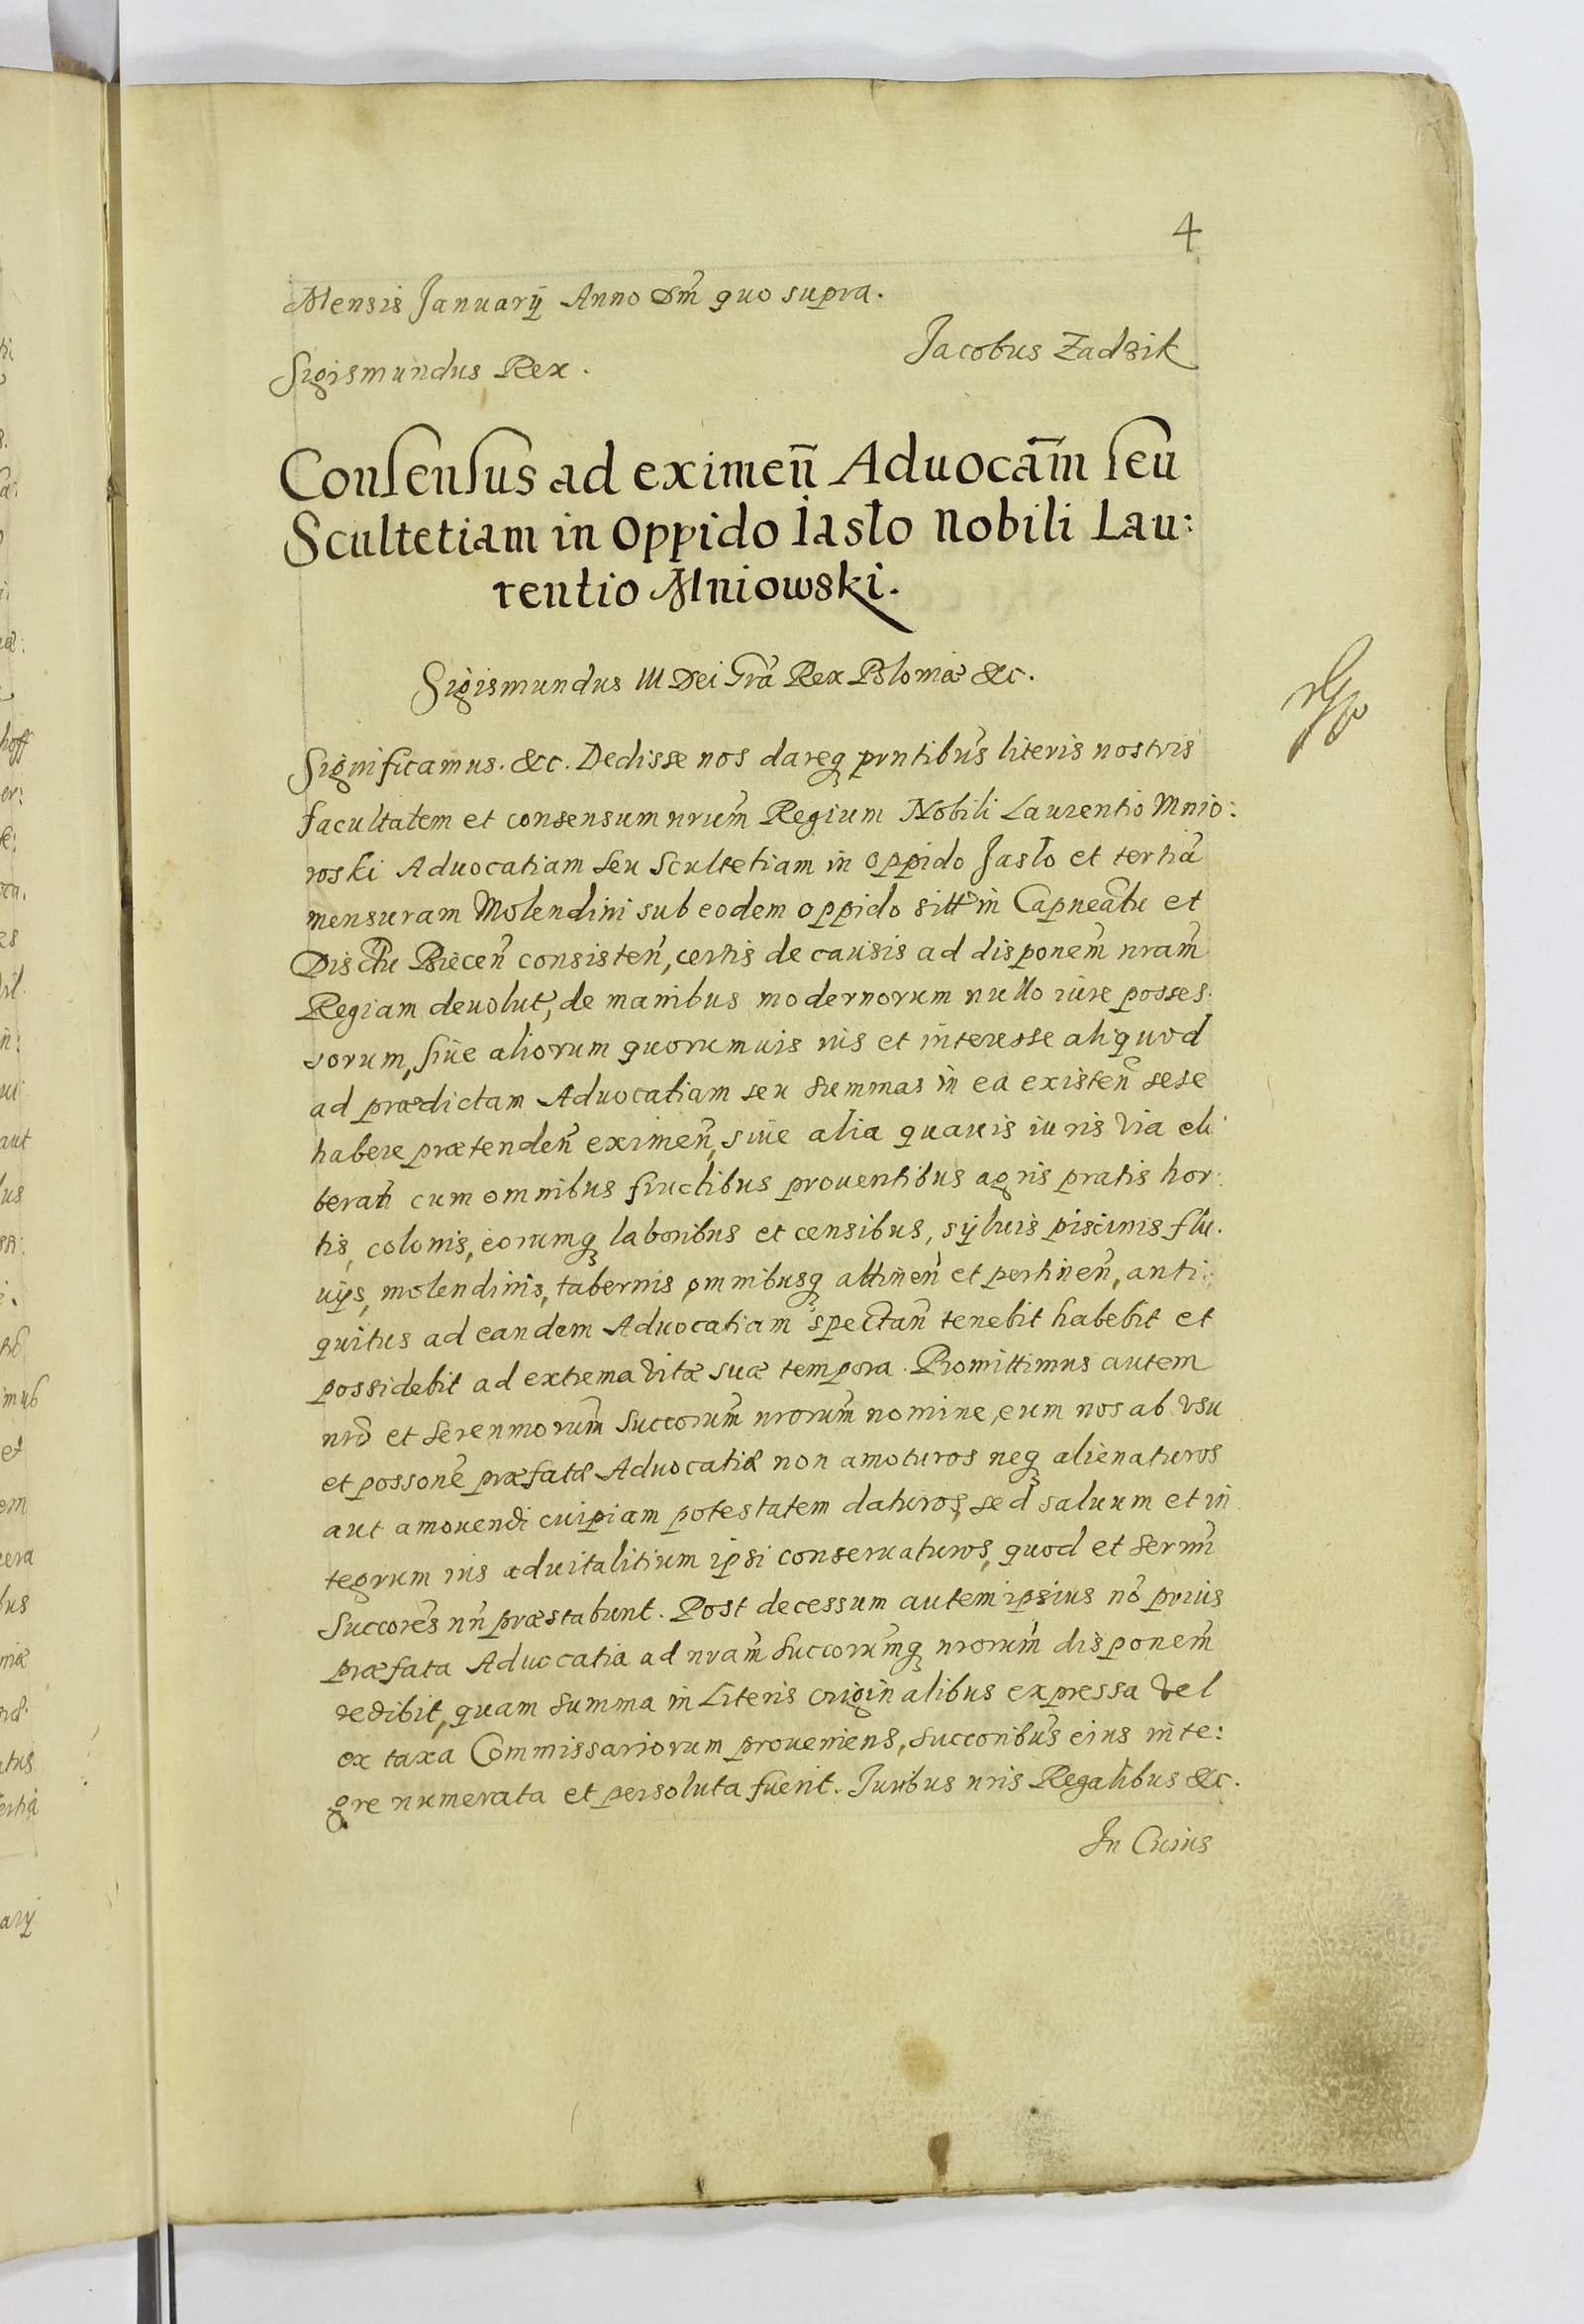 4
Mensis Januarÿ Anno Dm̃ quo supra.
Sigismundus Rex. Jacobus Zadzik
Consensus ad eximen̄ Aduocãm seu
Scultetiam in Oppido Iasło Nobili Lau:
rentio Mniowski.
Sigismundus III Dei Grã Rex Poloniæ &c.
Significamus. &c. Dedisse nos dareq prntibus literis nostris
facultatem et consensum nrum̃ Regium Nobili Laurentio Mnio:
roski Aduocatiam seu Scultetiam in oppido Jasło et tertiã
mensuram Molendini sub eodem oppido sitt in Capneãtu et
Disctu Biecen̄ consisten̄, certis de causis ad disponem̃ nram̃
Regiam deuolut, de manibus modernorum nullo iure posses:
sorum, siue aliorum quorumuis ius et interesse aliquod
ad prædictam Aduocatiam seu summas in ea existen̄ sese
habere prætenden̄ eximen̄, siue alia quauis iuris via eli
beran̄ cum omnibus fructibus prouentibus agris pratis hor:
tis, colonis, eorumq laboribus et censibus, sÿluis piscinis flu:
uÿs, molendinis, tabernis omnibusq attinen̄ et pertinen̄, anti:
quitus ad eandem Aduocatiam spectan̄ tenebit habebit et
possidebit ad extrema vitæ suæ tempora. Promittimus autem
nrõ et serenmorum̃ succorum̃ nrorum̃ nomine, eum nos ab vsu
et possonẽ præfatæ Aduocatiæ non amoturos neq alienaturos
aut amouendi cuipiam potestatem daturos, sed saluum et in
tegrum ius aduitalitium ipsi conseruaturos, quod et sermĩ
Succorẽs nrĩ præstabunt. Post decessum autem ipsius nõ prius
præfata Aduocatia ad nram̃ succorum̃q nrorum̃ disponem̃
redibit, quam summa in Literis originalibus expressa vel
ex taxa Commissariorum proueniens, succoribus eius inte:
gre numerata et persoluta fuerit. Juribus nris Regalibus &c.
In Cuius